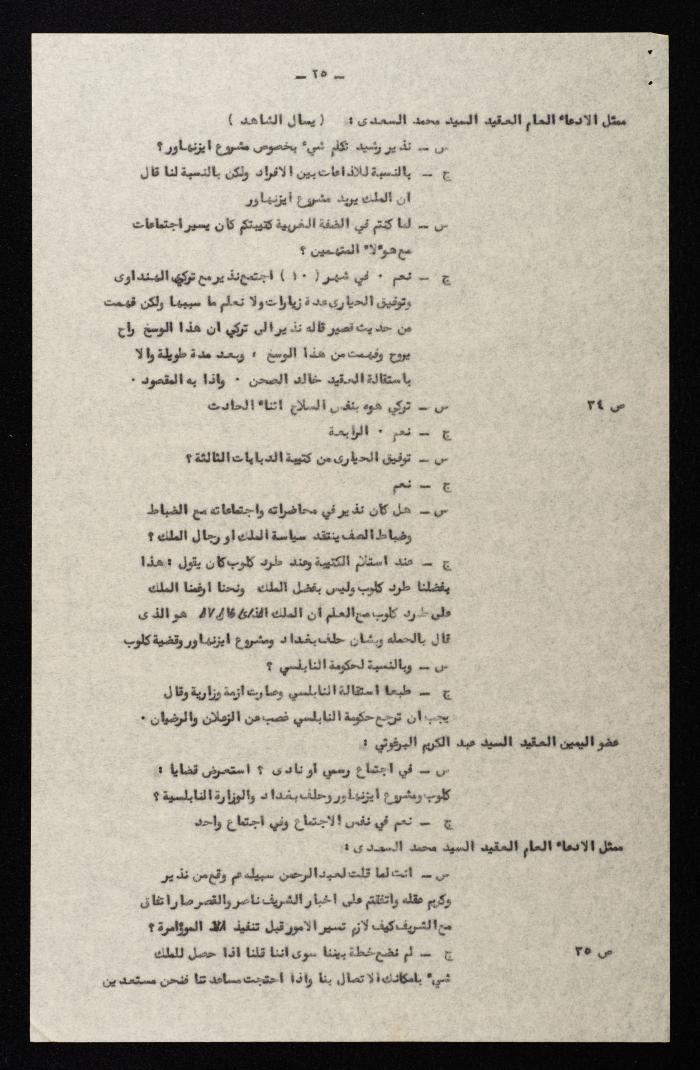 ـ ٢٥ ـ
ممثل الادعاء العام العقيد السيد محمد السعدى : ( يسال الشاهد )
س ـ نذير رشيد تكلم شيء بخصوص مشروع ايزنهاور ؟
ج ـ بالنسبة للاذاعات بين الافراد ولكن بالنسبة لنا قال
ان الملك يريد مشروع ايزنهاور
س ـ لما كنتم في الضفة الغربية كتيبتكم كان يسير اجتماعات
مع هولاء المتهمين ؟
ج ـ نعم ٠ في شهر ( ١٠ ) اجتمع نذير مع تركي الهنداوى
وتوفيق الحيارى عدة زيارات ولا نعلم ما سببها ولكن فهمت
من حديث قصير قاله نذير الى تركي ان هذا الوسخ راح
يروح وفهمت من هذا الوسخ ، وبعد مدة طويلة والا
باستقالة العقيد خالد الصحن ٠ واذا به المقصود ٠
س ـ تركي هوه بنفس السلاح اثناء الحادث
ص ٣٤
ج ـ نعم ٠ الرابعة
س ـ توفيق الحيارى من كتيبة الدبابات الثالثة ؟
ج ـ نعم
س ـ هل كان نذير في محاضراته واجتماعاته مع الضباط
وضباط الصف ينتقد سياسة الملك او رجال الملك ؟
ج ـ عند استلام الكتيبة وعند طرد كلوب كان يقول : هذا
بفضلنا طرد كلوب وليس بفضل الملك ونحنا ارغمنا الملك
على طرد كلوب مع العلم ان الملك هو الذى
قال بالحمله وبشان حلف بغداد ومشروع ايزنهاور وقضية كلوب
س ـ وبالنسبة لحكومة النابلسي ؟
ج ـ طبعا استقالة النابلسي وصارت ازمة وزارية وقال
يجب ان ترجع حكومة النابلسي غصب عن الزعلان والرضيان ٠
عضو اليمين العقيد السيد عبد الكريم البرغوثي :
س ـ في اجتماع رسمي او نادى ؟ استعرض قضايا :
كلوب ومشروع ايزنهاور وحلف بغداد والوزارة النابلسية ؟
ج ـ نعم في نفس الاجتماع وفي اجتماع واحد
ممثل الادعاء العام العقيد السيد محمد السعدى :
س ـ انت لما قلت لعبد الرحمن سبيله عم وقع من نذير
وكريم عقله واتفقتم على اخبار الشريف ناصر والقصر صار اتفاق
مع الشريف كيف لازم تسير الامور قبل تنفيذ الموؤامرة ؟
ج ـ لم نضع خطة بيننا سوى اننا قلنا اذا حصل للملك
ص ٣٥
شيء بامكانك الاتصال بنا واذا احتجت مساعدتنا فنحن مستعدين